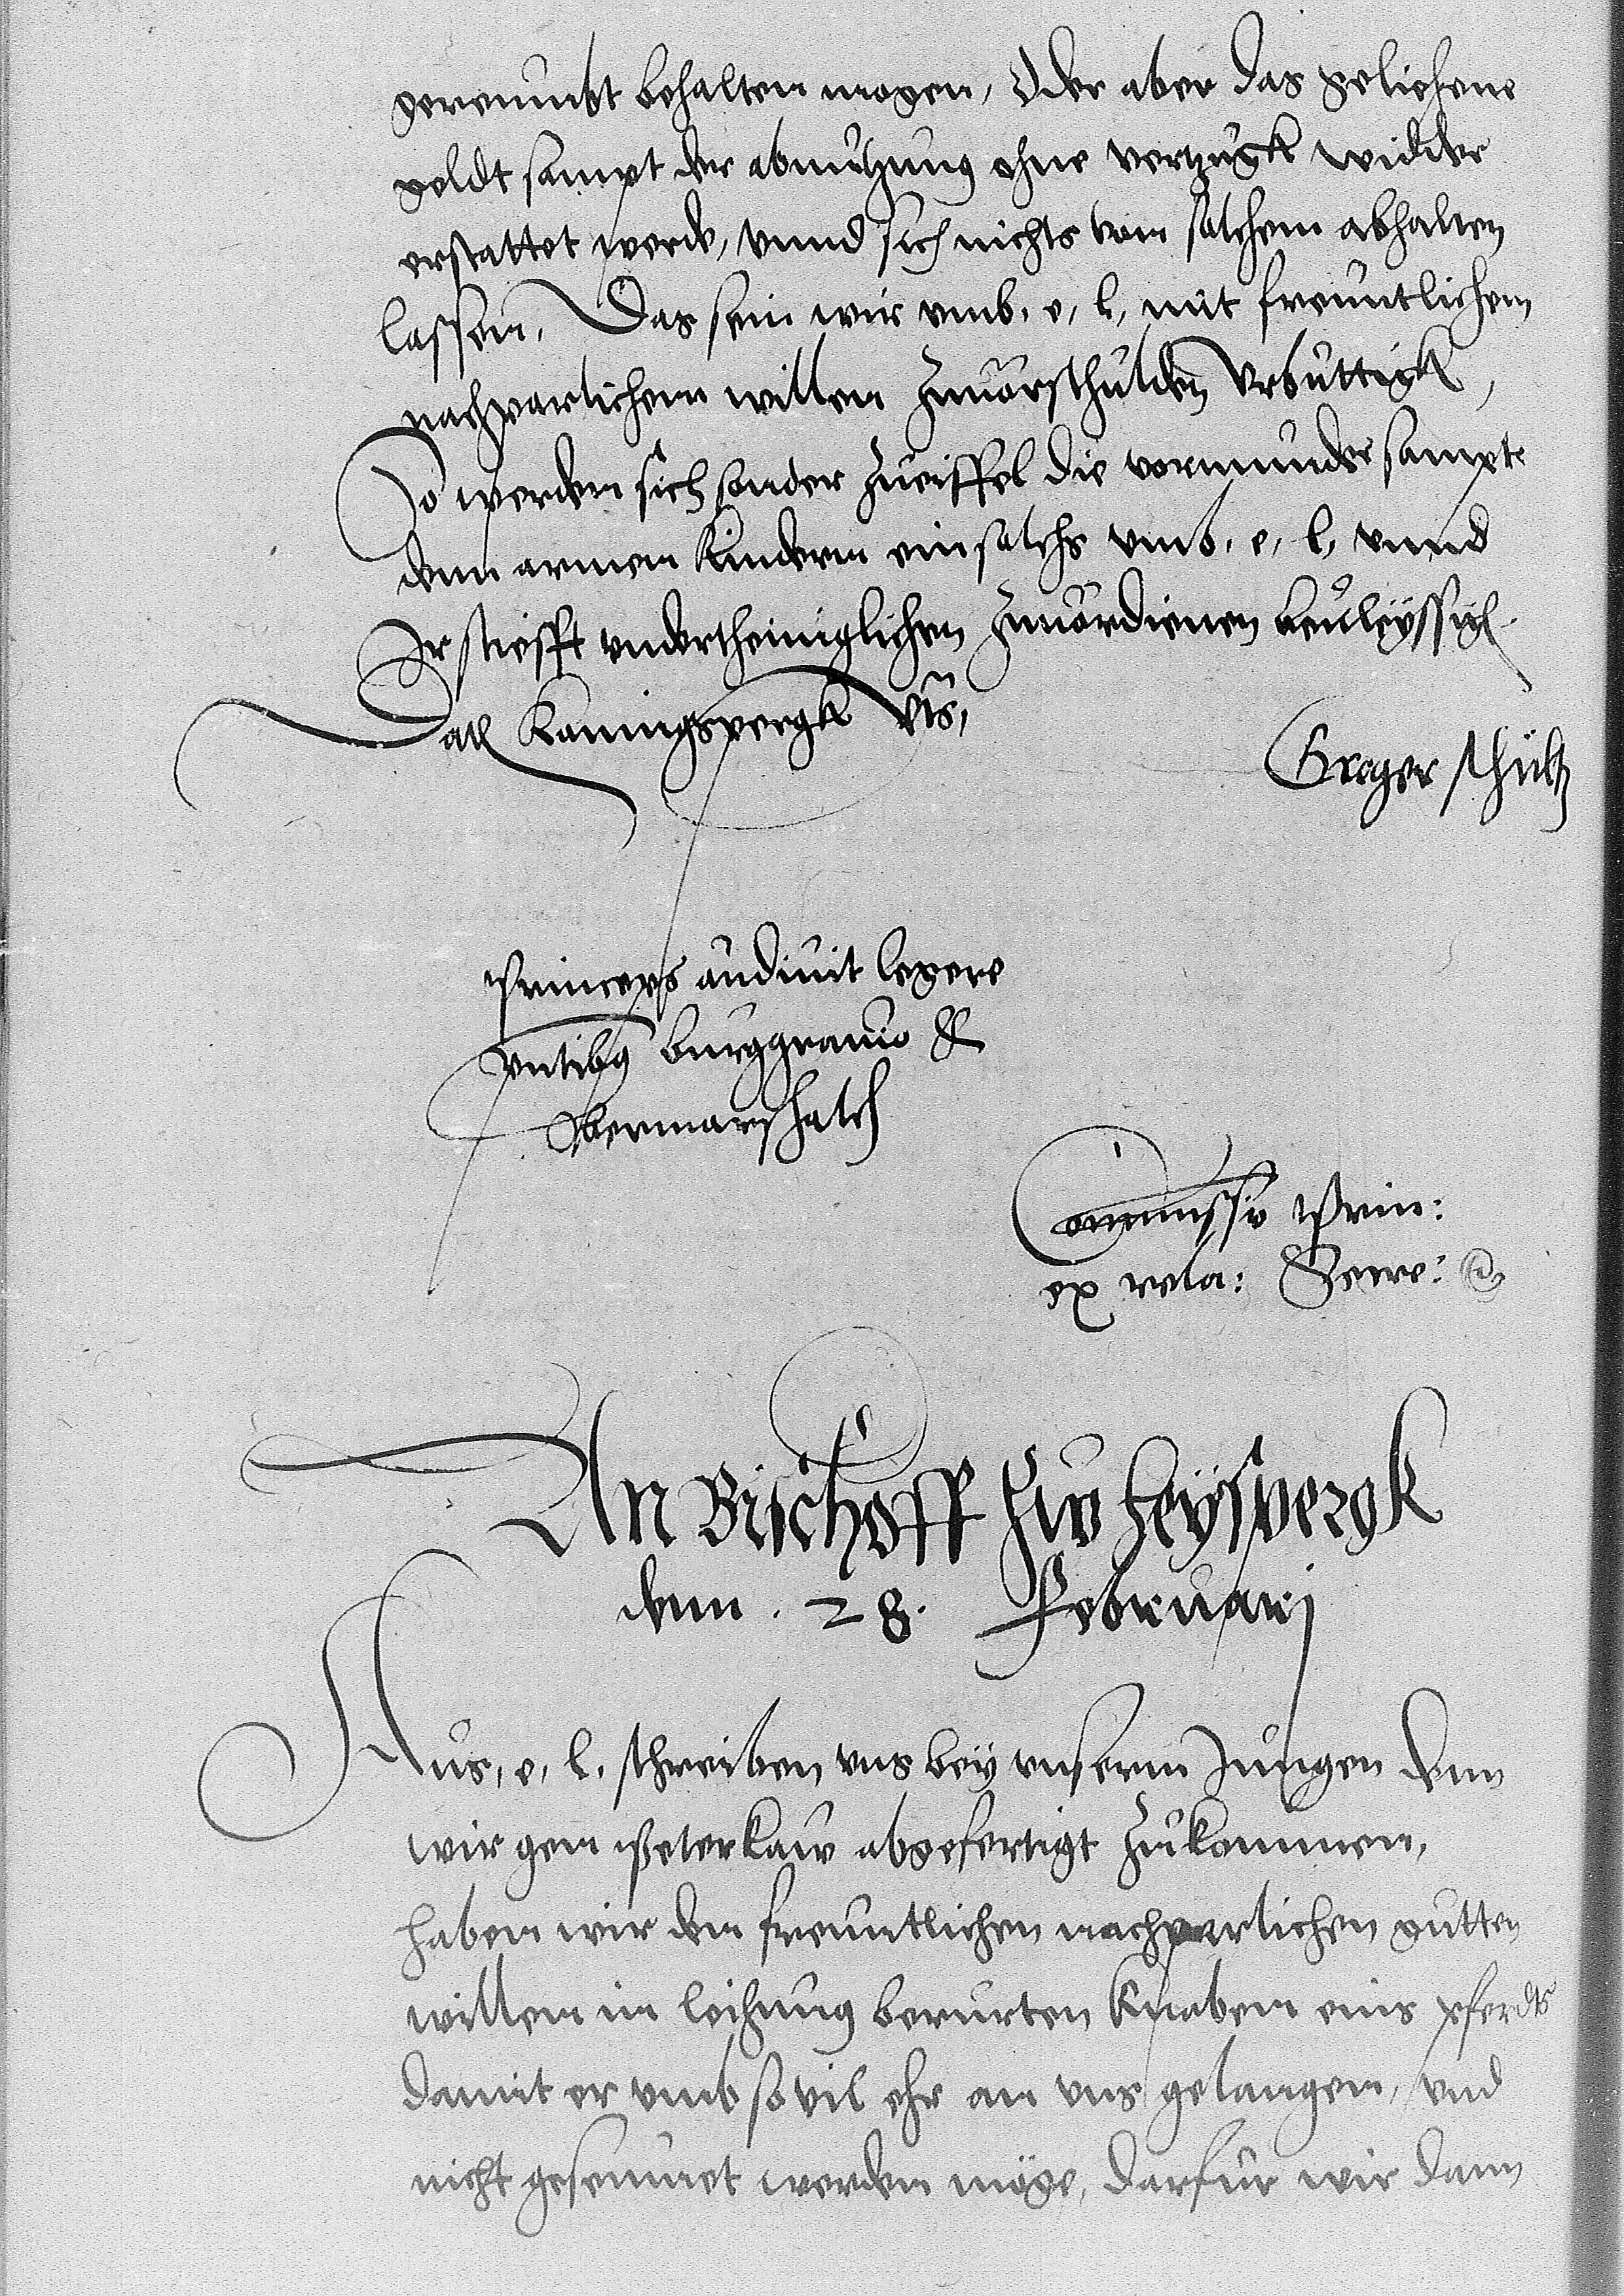 gereumbt behalten mogen, Oder aber das geliehene
geldt sampt der abnutzung ohne vertzugk widder
erstattet werde, vnnd sich nichts von solchem abhalten
lassen, Das sein wir vmb, e, l, mit freuntlichem
nachparlichem willen zuuorschulden Vrbuttigk,
So werden sich sonder zueiffel die vormunder sampt
denn armen Kindern ein solchs vmb, e, l, vnnd
Ir stiefft vndertheiniglichen zuuordienen beuleyssigen
Dat Konnigspergk Vts,
Greger schultz
Princeps audiuit legere
pntibus burggrauio &
Obermarschalch
Commissio Prin:
ex rela: Secre:
An Bischoff zw heylspergk
denn. 28. Februarj
Aus, e, l. schreiben, vns bey vnserm Jungen denn
wir gen Peterkaw abgefertigt zukommen,
haben wir den freuntlichen nachparlichen gutten
willen in leihung berurten Knaben eins pferdts
damit er vmb so vil ehr an vns gelangen, vnd
nicht geseumet werden möge, darfur wir dann